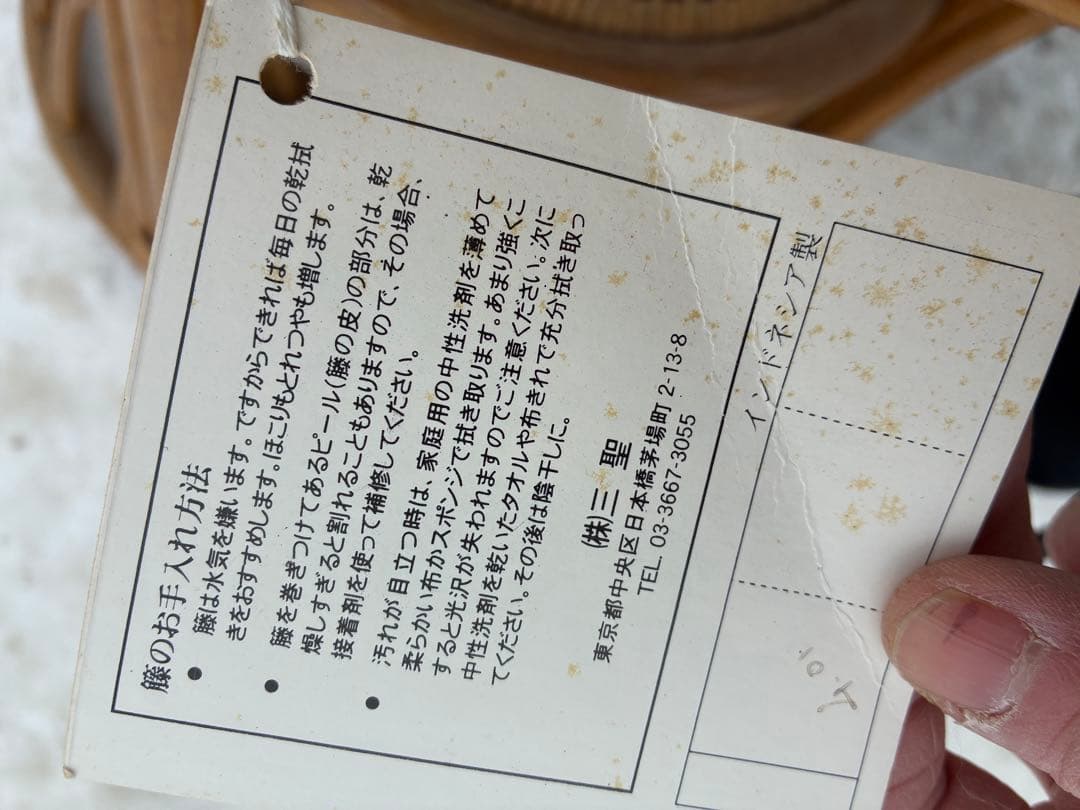 籐のお手入れ方法
● 籐は水気を嫌います。ですからできれば毎日の乾拭
きをおすすめします。ほこりもとれつやも増します。
● 籐を巻きつけてあるピール(籐の皮)の部分は、乾
燥しすぎると割れることもありますので、その場合、
接着剤を使って補修してください。
● 汚れが目立つ時は、家庭用の中性洗剤を薄めて
柔らかい布かスポンジで拭き取ります。あまり強くこ
すると光沢が失われますのでご注意ください。次に
中性洗剤を乾いたタオルや布きれで充分拭き取っ
てください。その後は陰干しに。
㈱三聖
東京都中央区日本橋茅場町 2-13-8
TEL 03-3667-3055
インドネシア製